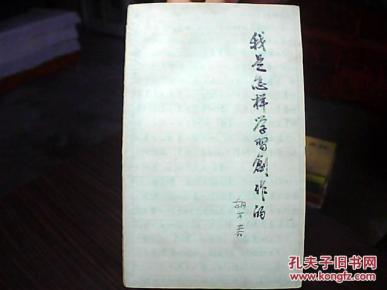 我是怎样学習創作的
胡万春
孔夫子旧书网